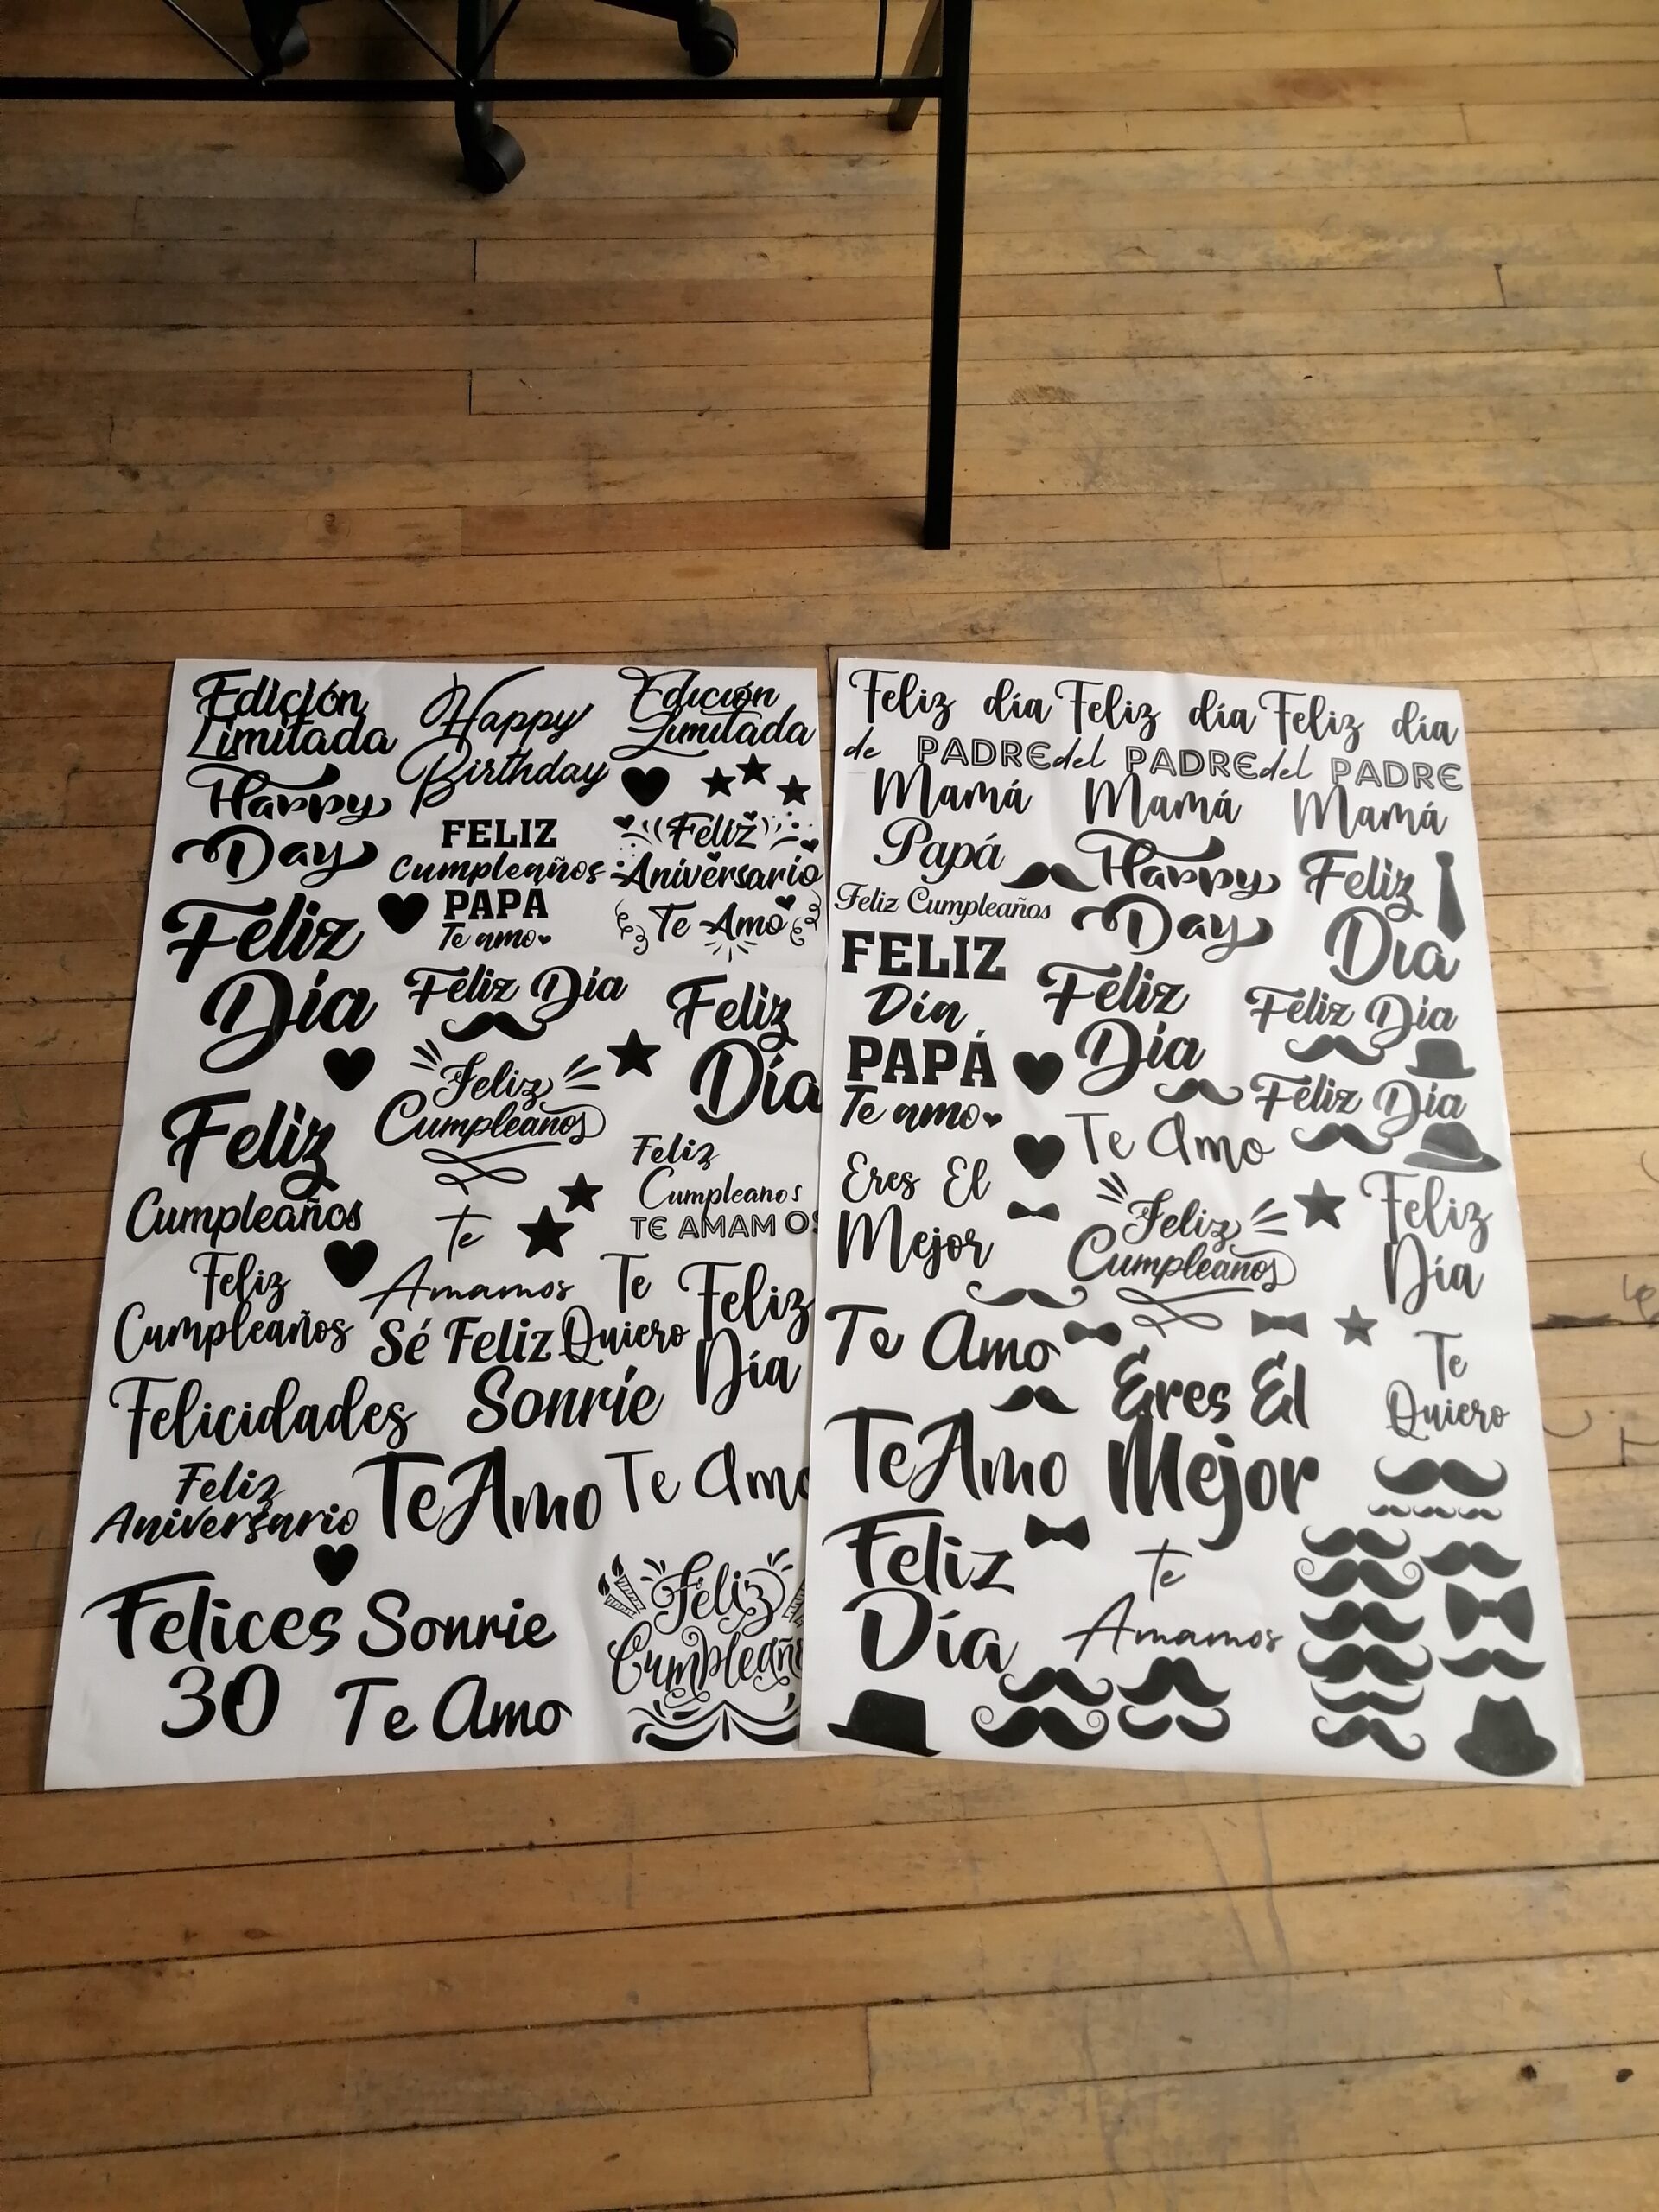 Edición
Limitada
Happy
Birthday
Edición
Limitada
Happy
Day
FELIZ
Cumpleaños
PAPA
Te amo
Feliz
Aniversario
Te Amo
Feliz
Día
Feliz Día
Feliz
Día
Feliz
Cumpleaños
Feliz
Cumpleaños
Feliz
Cumpleanos
TE AMAMOS
te
Amamos
Feliz
Cumpleaños
Sé Feliz
Te
Quiero
Feliz
Día
Felicidades
Sonríe
Feliz
Aniversario
Te Amo
Te Amo
Felices
30
Sonrie
Te Amo
Feliz
Cumpleañ
Feliz día Feliz día Feliz día
de PADRE del PADRE del PADRE
Mamá Mamá Mamá
Papá
Feliz Cumpleaños
Happy
Day
Feliz
Día
FELIZ
Día
PAPÁ
Te amo
Feliz
Día
Feliz Día
Feliz Día
Te Amo
Eres El
Mejor
Feliz
Cumpleaños
Feliz
Día
Te Amo
Eres El
Mejor
Te
Quiero
Te Amo
Feliz
Día
te
Amamos